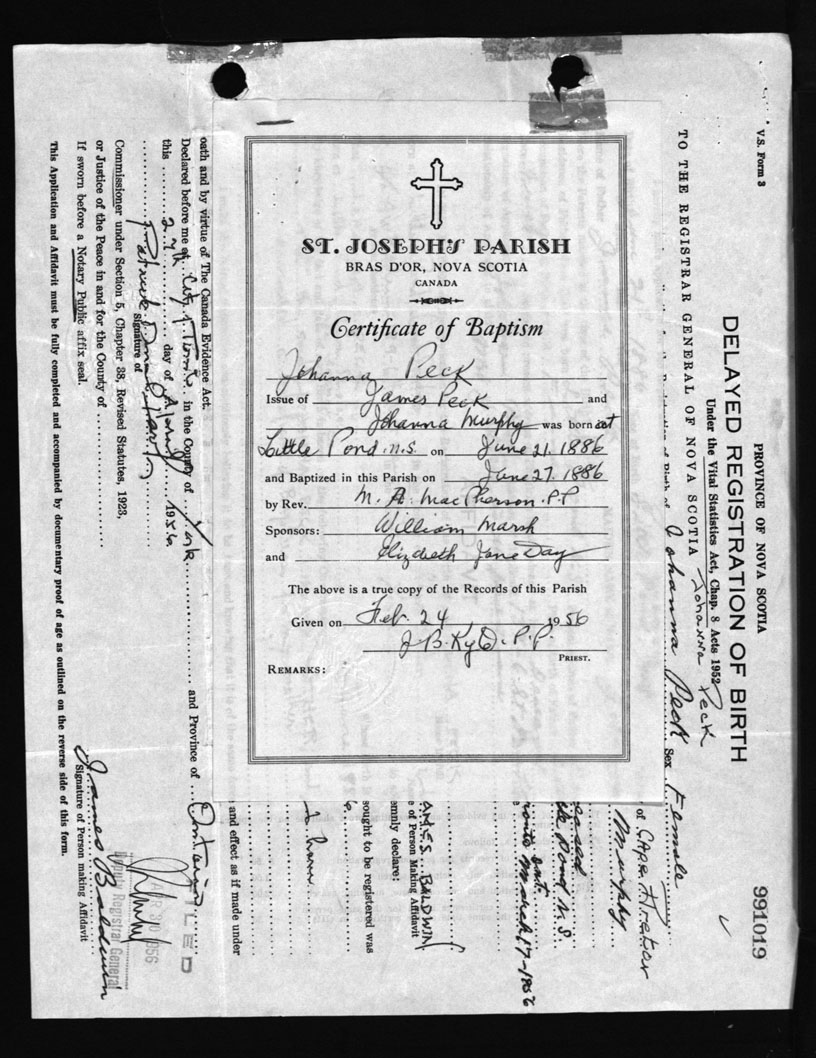 ST. JOSEPH'S PARISH
BRAS D'OR, NOVA SCOTIA
CANADA
Certificate of Baptism
Johanna Peck
Issue of James Peck and
Johanna Murphy was born at
Little Pond N.S. on June 21. 1886
and Baptized in this Parish on June 27. 1886
by Rev. M. A. MacPherson. P.P
Sponsors: William Marsh
and Elizabeth Jane Day
The above is a true copy of the Records of this Parish
Given on Feb. 24 1956
P.P.
PRIEST.
REMARKS:
V.S. Form 3
PROVINCE OF NOVA SCOTIA
991019
DELAYED REGISTRATION OF BIRTH
Under the Vital Statistics Act, Chap. 8 Acts 1952
TO THE REGISTRAR GENERAL OF NOVA SCOTIA
Johanna Peck
Johanna Peck Sex Female
of Cape Breton
Murphy
Pond N.S.
Ont. March 17-1956
AMES BALDWIN
e of Person Making Affidavit
emnly declare:
sought to be registered was
6
and effect as if made under
oath and by virtue of The Canada Evidence Act.
Declared before me at City of Toronto in the County of York and Province of Ontario
this 27th day of 1956
Signature of
Commissioner under Section 5, Chapter 38, Revised Statutes, 1923,
or Justice of the Peace in and for the County of
If sworn before a Notary Public affix seal.
FILED
APR 30 1956
Deputy Registrar General
James Baldwin
Signature of Person making Affidavit
This Application and Affidavit must be fully completed and accompanied by documentary proof of age as outlined on the reverse side of this form.